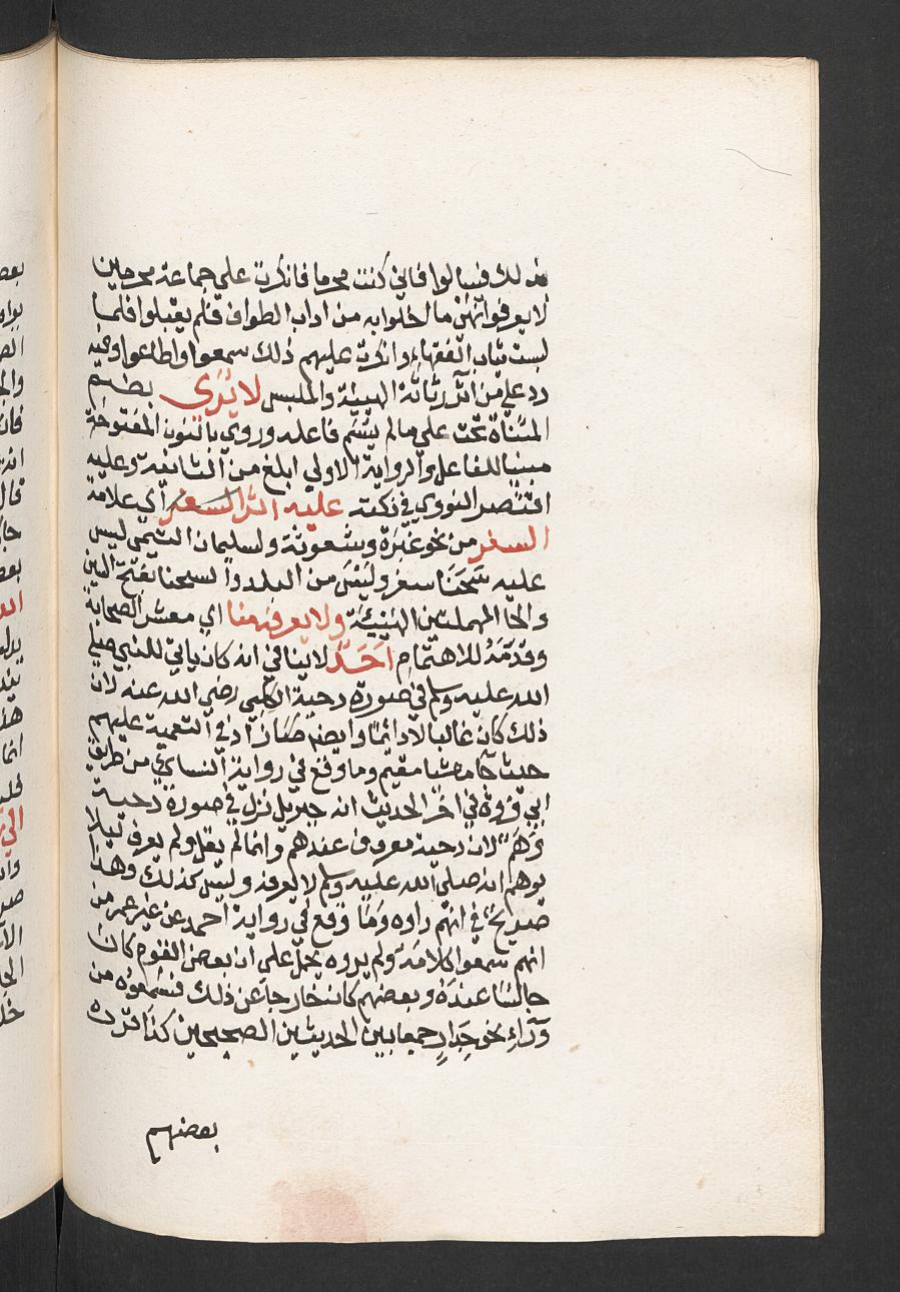 بذلك فيسالوا فاني كنت محرما فانكرت علي جماعة محرمين
لا يعرفوا انهن ما اخلوا به من اداب الطواف فلم يقبلوا فلما
لبست ثياب الفقهاء وانكرت عليهم ذلك سمعوا واطاعوا وفيه
رد علي من اثر رثاثة الهيئة والملبس لا يُرَى بضم
المثناة تحت علي ما لم يسم فاعله وروي بالنون المفتوحة
مبنيا للفاعل والرواية الاولي ابلغ من الثانية وعليه
اقتصر النووي في نكته عليه اثر السفر اي علامة
السفر من نحو غبرة وشعوثة ولسليمان التيمي ليس
عليه سَحنَا سفر وليس من البلد والسحنا بفتح السين
والحا المهملتين الهيئة ولا يعرفه منا اي معشر الصحابة
وقدَّمَهُ للاهتمام احَدٌ لا ينافي انه كان ياتي للنبي صلي
الله عليه وسلم في صورة دحية الكلبي رضي الله عنه لان
ذلك كان غالبا لا دائما وايضا زاد في التعمية عليهم
حيث جا مقيم وما وقع في رواية النسائي من طريق
ابي فروة في اخر الحديث انه جبريل نزل في صورة دحية
وَهَمٌ لان دحية معروف عندهم وانما لم يقل ولم يعرف ليلا
يوهم انه صلي الله عليه وسلم لا يعرفه وليس كذلك وهذا
صريح في انهم راوه وما وقع في رواية احمد عن غير عمر من
انهم سمعوا كلامه ولم يروه يحمل علي ان بعض القوم كان
جالسا عنده وبعضهم كان خارجا عن ذلك فسمعوه من
وَرَاءِ نحو جِدارٍ جمعا بين الحديثين الصحيحين كذا قرره
بعضهم